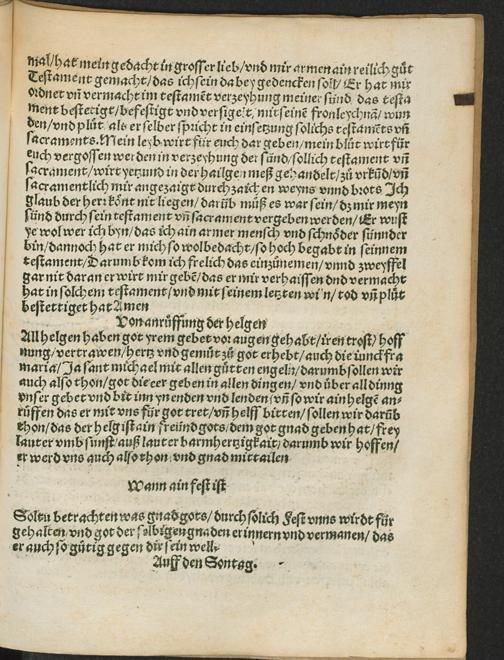 mal/hat mein gedacht in grosser lieb/vnd mir armen ain reilich gůt
Testament gemacht/das ich sein dabey gedencken soll/Er hat mir
ordnet vn̄ vermacht im testamēt verzeyhung meiner sünd, das testa
ment bestetigt/befestigt vnd versigelt, mit seinē fronleychnā/wun
den/vnd plůt, als er selber spricht in einsetzung solichs testamēts vn̄
sacraments. Mein leyb wirt für euch dar geben/mein blůt wirt für
euch vergossen werden in verzeyhung der sünd/sollich testament vn̄
sacrament/wirt yetzund in der hailgen meß gehandelt/zů vrkūd/vn̄
sacramentlich mir angezaigt durch zaichen weyns vnnd brots Ich
glaub der her könt nit liegen/darūb můß es war sein/dz mir meyn
sünd durch sein testament vn̄ sacrament vergeben werden/Er wust
ye wol wer ich byn/das ich ain armer mensch vnd schnöder sünnder
bin/dannoch hat er mich so wolbedacht/so hoch begabt in seinnem
testament/Darumb kom ich frelich das einzůnemen/vnnd zweyffel
gar nit daran er wirt mir gebē/das er mir verhaissen vnd vermacht
hat in solchem testament/vnd mit seinem letzten willn/tod vn̄ plůt
bestettiget hat Amen
Von anrüffung der helgen
All helgen haben got yrem gebet vor augen gehabt/iren trost/hoff
nung/vertrawen/hertz vnd gemüt zů got erhebt/auch die iunckfra
maria/Ja sant michael mit allen gůtten engeln/darumb sollen wir
auch also thon/got die eer geben in allen dingen/vnd über all dinng
vnser gebet vnd bit im ynenden vnd lenden/vn̄ so wir ain helgē an-
rüffen das er mit vns für got tret/vn̄ helff bitten/sollen wir darūb
thon/das der helg ist ain freünd gots/dem got gnad geben hat/frey
lauter vmb sunst/auß lauter barmhertzigkait/darumb wir hoffen/
er werd vns auch also thon/vnd gnad mittailen
Wann ain fest ist
Soltu betrachten was gnad gots/durch solich Fest vnns wirdt für
gehalten/vnd got der selbigen gnaden erinnern vnd vermanen/das
er auch so gütig gegen dir sein well.
Auff den Sontag.